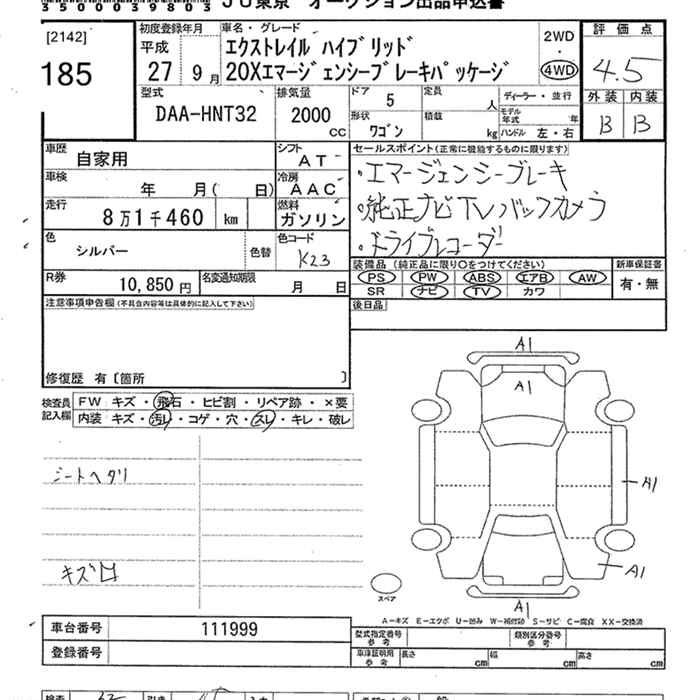 3500039803 JU東京 オークション出品申込書
[2142]
185
初度登録年月
平成
27 9月
車名・グレード
エクストレイル ハイブリッド
20Xエマージェンシーブレーキパッケージ
2WD
・
4WD
評価点
4.5
外装 内装
B B
型式
DAA-HNT32
排気量
2000
CC
ドア 5
定員 人
ディーラー・並行
形状 ワゴン
積載 kg
モデル年式 年
ハンドル 左・右
車歴 自家用
シフト AT
セールスポイント(正常に機能するものに限ります)
・エマージェンシーブレーキ
・純正ナビTVバックカメラ
・ドライブレコーダー
車検 年 月( 日)
冷房 AAC
走行 8万1千460 km
燃料 ガソリン
色 シルバー
色替
色コード K23
R券 10,850円
名変通知期限 月 日
装備品 (純正品に限り○をつけてください)
PS PW ABS エアB AW
SR ナビ TV カワ
新車保証書
有・無
注意事項申告欄(不具合内容等は具体的に記入して下さい)
後日品
修復歴 有 [箇所 ]
検査員記入欄
FW キズ・飛石・ヒビ割・リペア跡・×要
内装 キズ・汚レ・コゲ・穴・スレ・キレ・破レ
シートヘタリ
キズ凹
A1
A1
A1
A1
A1
スペア
A-キズ E-エクボ U-凹み W-補修跡 S-サビ C-腐食 XX-交換済
車台番号 111999
登録番号
型式指定番号 参考
類別区分番号 参考
車庫証明用 参考 長さ cm 幅 cm 高さ cm
検査